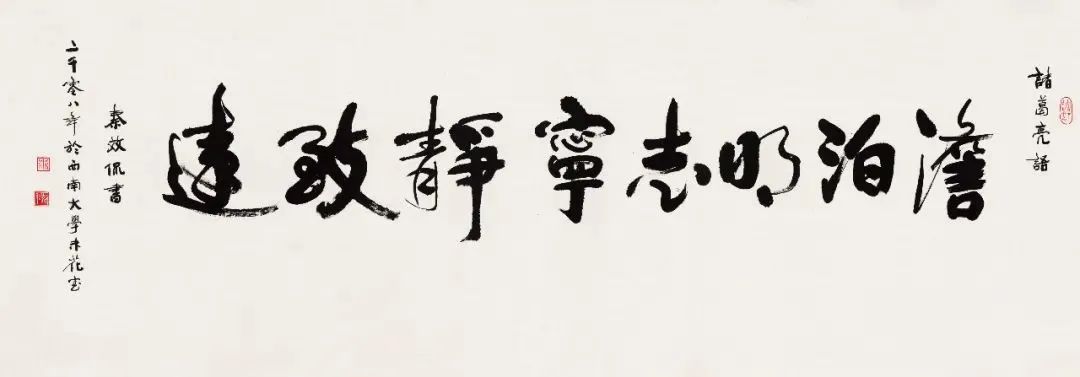 諸葛亮語
澹泊明志寧靜致遠
秦效侃書
二千零八年於西南大學木花室